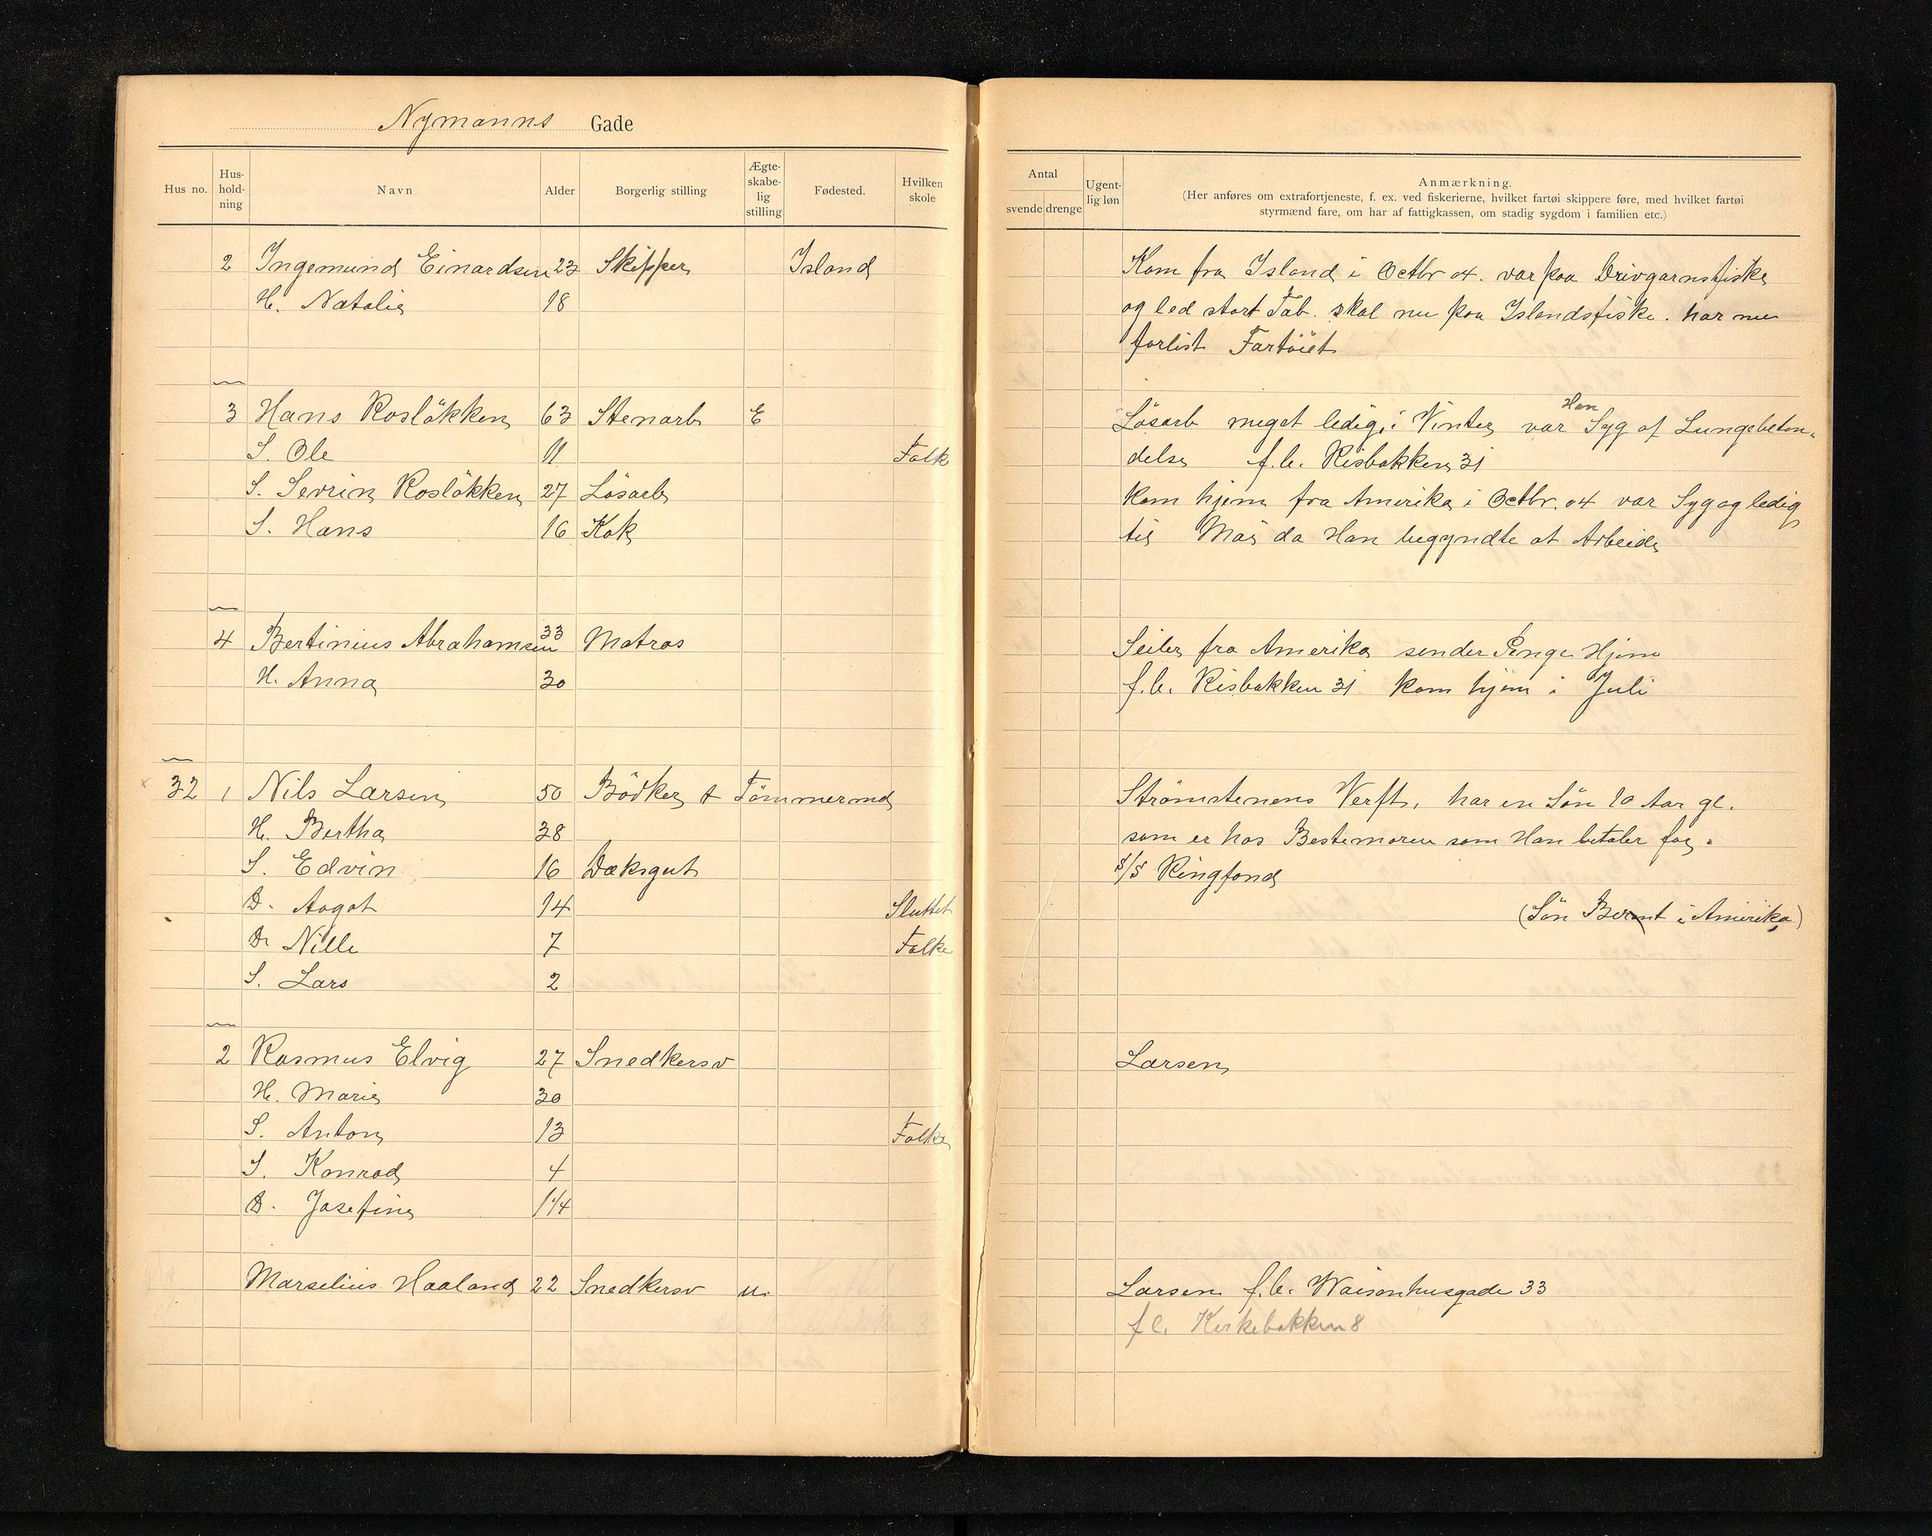 Nymanns Gade
Hus no. Hus-hold-ning Navn Alder Borgerlig stilling Ægte-skabe-lig stilling Fødested. Hvilken skole
2 Ingemund Einardsen 23 Skipper Island
H. Natalie 18
3 Hans Roslökken 63 Stenarb E
S. Ole 11 Folk
S. Sevrin Roslökken 27 Lösarb
S. Hans 16 Kok
4 Bertinius Abrahamsen 33 Matros
H. Anna 30
32 1 Nils Larsen 50 Bödker & Tömmermd
H. Bertha 38
S. Edvin 16 Dæksgut
D. Aagot 14 Sluttet
D. Nille 7 Folke
S. Lars 2
2 Rasmus Elvig 27 Snedkersv
H. Marie 30
S. Anton 13 Folke
S. Konrad 4
D. Josefine 1/4
Marselius Haaland 22 Snedkersv u.
Antal
svende drenge
Ugent-lig løn
Anmærkning.
(Her anføres om extrafortjeneste, f. ex. ved fiskerierne, hvilket fartøi skippere føre, med hvilket fartøi
styrmænd fare, om har af fattigkassen, om stadig sygdom i familien etc.)
Kom fra Island i Octbr 04. var paa Drivgarnsfiske
og led stort Tab. skal nu paa Islandsfiske. har nu
forlist Fartöiet
Lösarb meget ledig i Vinter var Han Syg af Lungebeten-
delse f.b. Risbakken 31
kom hjem fra Amerika i Octbr. 04 var Syg og ledig
til Mai da Han begyndte at Arbeide
Seiler fra Amerika sender Penge Hjem
f.b. Risbakken 31 kom hjem i Juli
Strömstenens Verft. har en Sön 10 Aar gl.
som er hos Bestemoren som Han betaler for.
S/S Ringfond
(Sön Bernt i Amerika)
Larsen
Larsen f.b. Waisenhusgade 33
f b. Kirkebakken 8